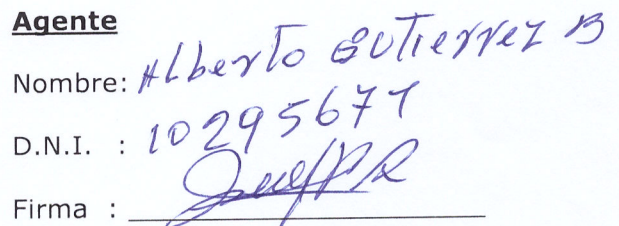 Agente
Nombre: Alberto Gutierrez B
D.N.I. : 10295671
Firma :